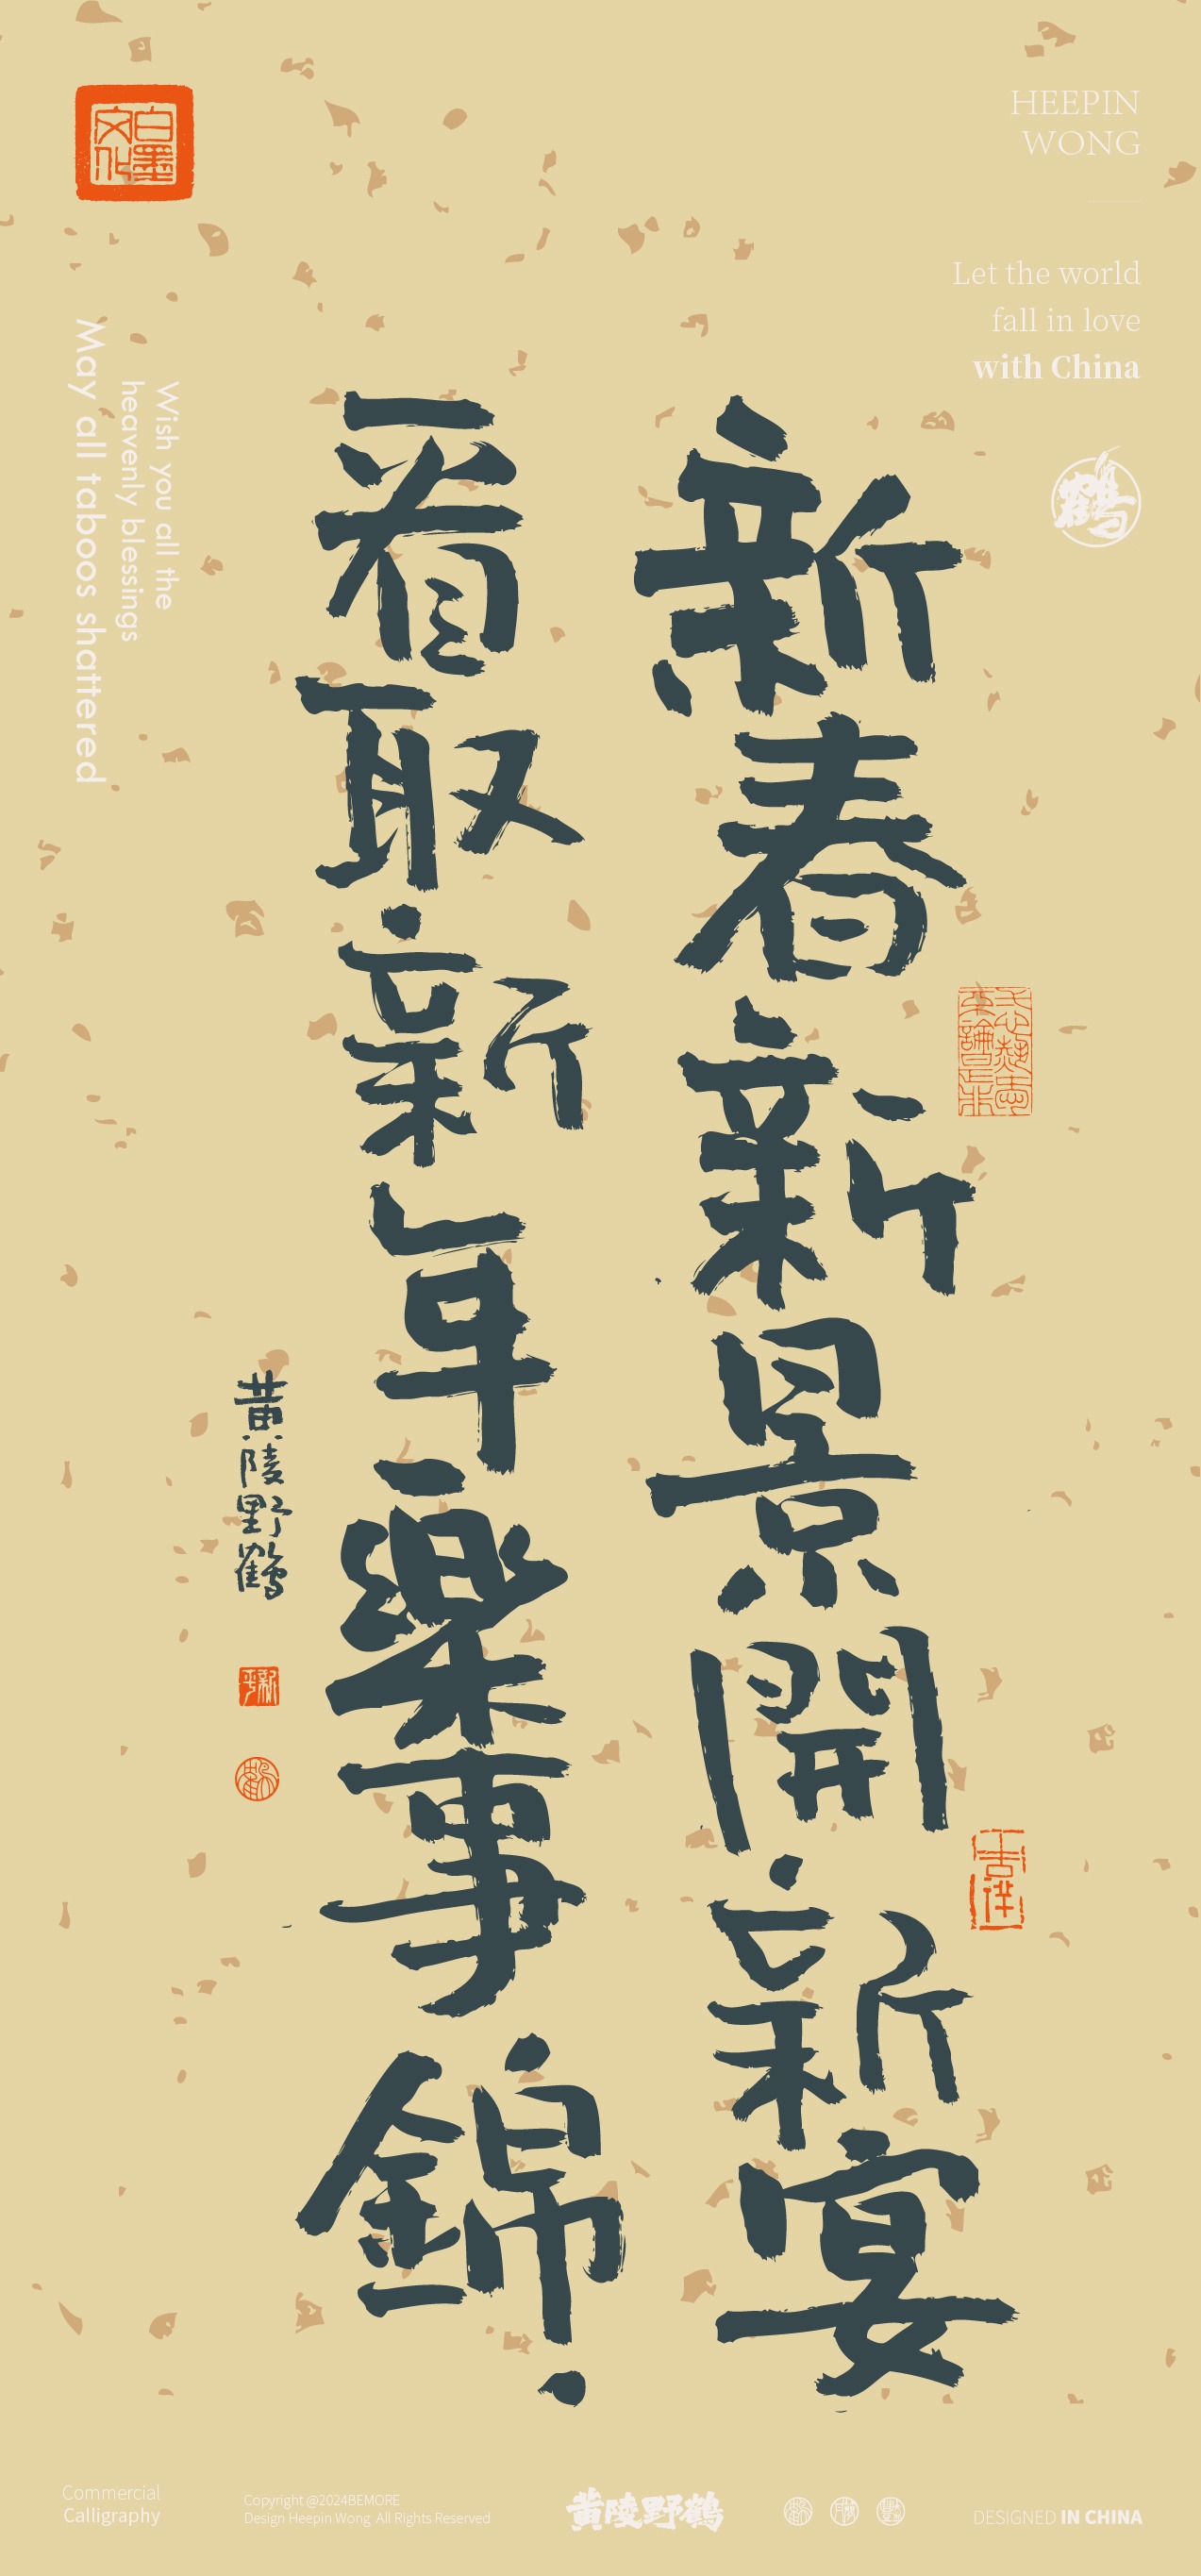 新春新景開新宴
看取新年樂事錦
黄陵野鶴
白墨文化
HEEPIN
WONG
Let the world
fall in love
with China
鶴
Wish you all the
heavenly blessings
May all taboos shattered
Commercial
Calligraphy
Copyright @2024BEMORE
Design Heepin Wong All Rights Reserved
黄陵野鶴
DESIGNED IN CHINA